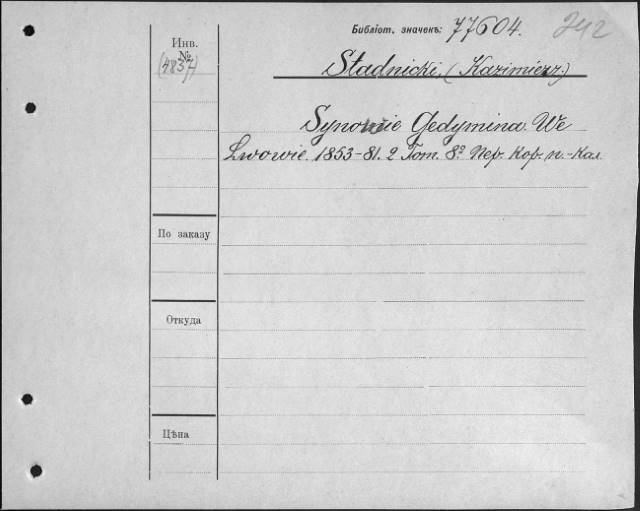 Библіот. значекъ: 77604. 242
Инв. №
(4837)
Stadnicki. (Kazimierz.)
Synowie Gedymina. We
Lwowie. 1853-81. 2 Tom. 8º Пер. Кор. п.-Кал.
По заказу
Откуда
Цѣна